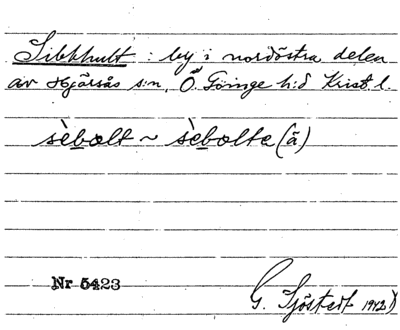 Sibbhult : by i nordöstra delen
av Hjärsås s:n, Ö. Göinge h:d Krist. l.
sèbolt ~ sèbolta (ā)
Nr 5423
G. Sjöstedt 1942